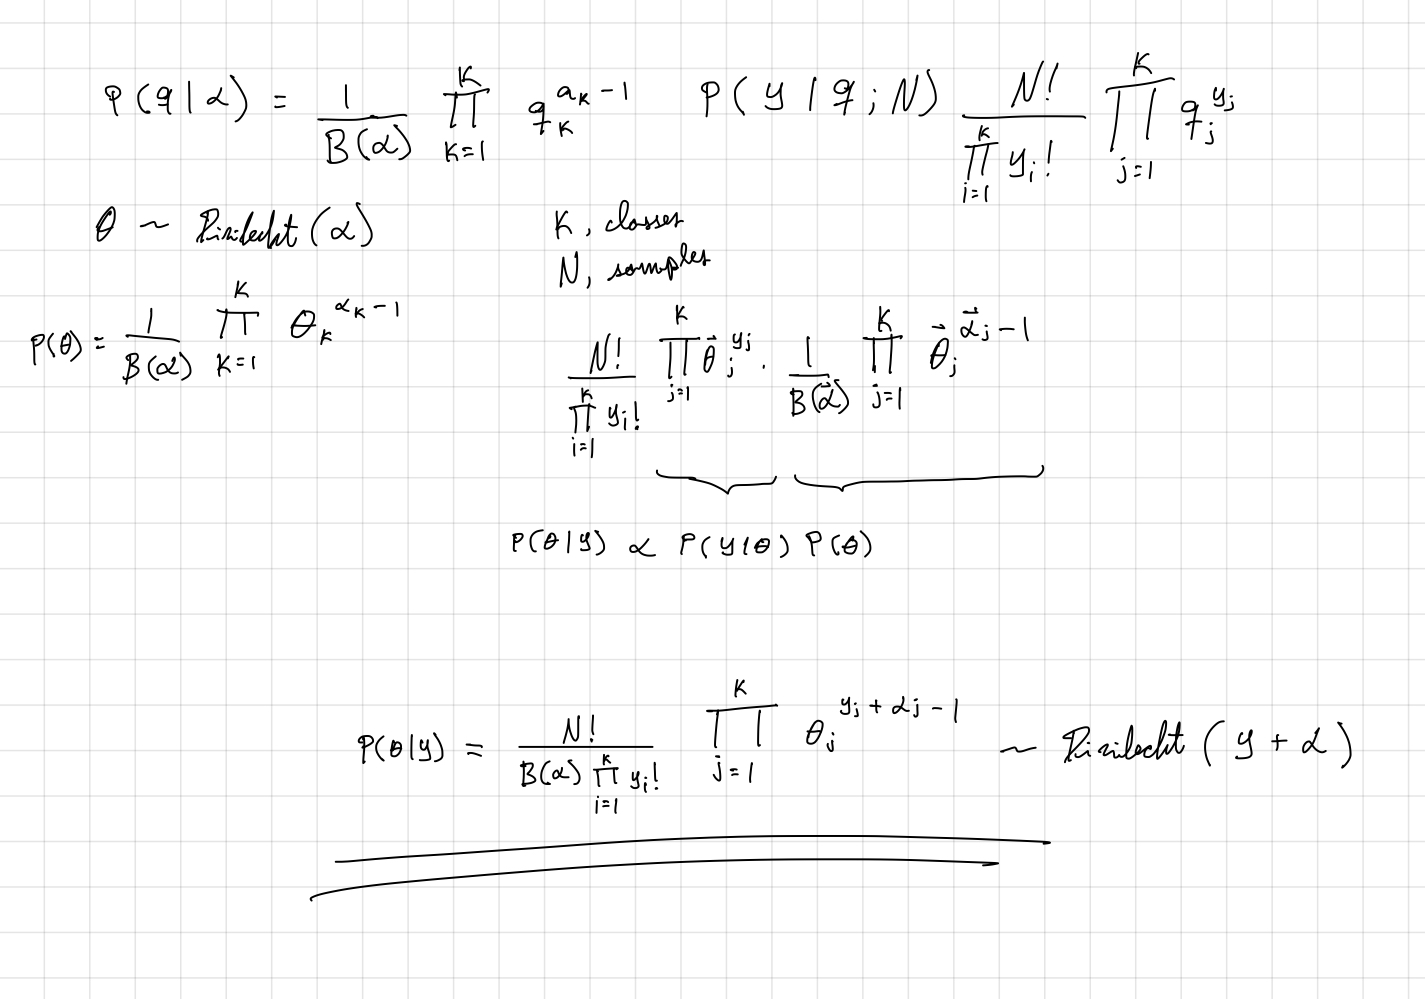 P(q|α) = 1/B(α) ∏_{k=1}^{K} q_k^{a_k-1}    P(y|q;N) N!/∏_{i=1}^{k} y_i! ∏_{j=1}^{K} q_j^{y_j}
θ ~ Dirilecht(α)    K, classes
N, samples
P(θ) = 1/B(α) ∏_{k=1}^{K} θ_k^{α_k-1}
N!/∏_{i=1}^{k} y_i! ∏_{j=1}^{K} θ⃗_j^{y_j} · 1/B(α⃗) ∏_{j=1}^{K} θ⃗_j^{α⃗_j-1}
P(θ|y) ∝ P(y|θ) P(θ)
P(θ|y) = N!/B(α)∏_{i=1}^{k} y_i! ∏_{j=1}^{K} θ_j^{y_j+α_j-1} ~ Dirilecht(y+α)